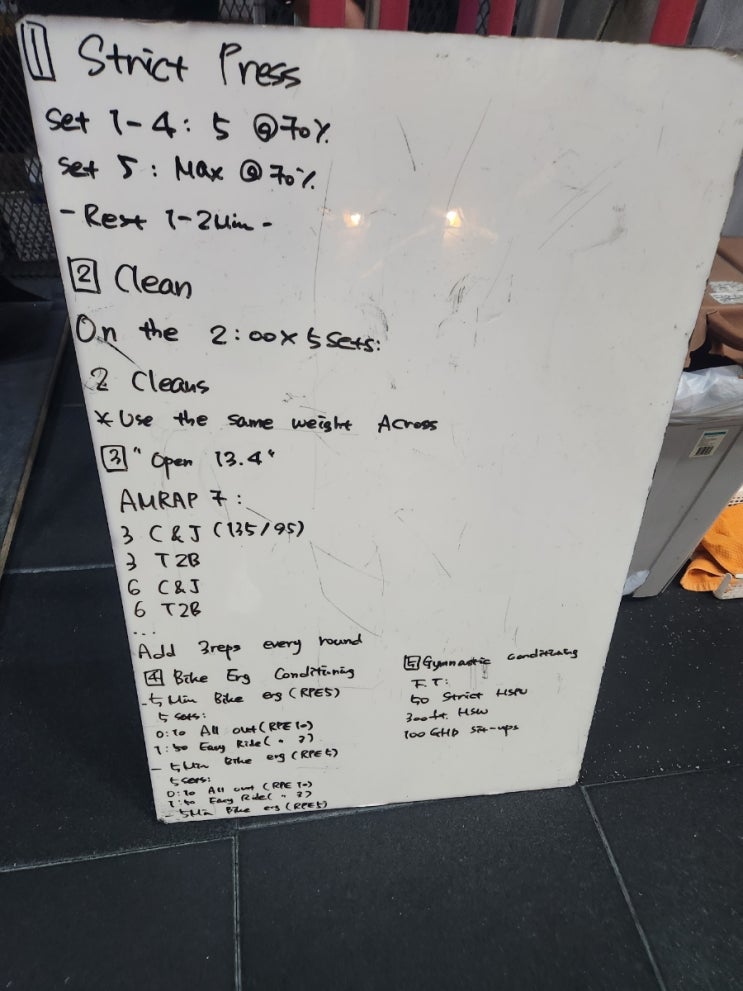 1 Strict Press
Set 1-4: 5 @70%
Set 5: Max @70%
- Rest 1-2Min -
2 Clean
On the 2:00 x 5 Sets:
2 Cleans
* Use the same weight Across
3 "Open 13.4"
AMRAP 7:
3 C&J (135/95)
3 T2B
6 C&J
6 T2B
...
Add 3reps every round
4 Bike Erg Conditioning
- 5 Min Bike erg (RPE5)
5 sets:
0:10 All out (RPE 10)
1:50 Easy Ride( " 2)
- 5 Min Bike erg (RPE5)
5 sets:
0:10 All out (RPE 10)
1:50 Easy Ride( " 2)
- 5Min Bike erg (RPE5)
5 Gymnastic conditioning
F.T:
50 Strict HSPU
300ft. HSW
100 GHD Sit-ups